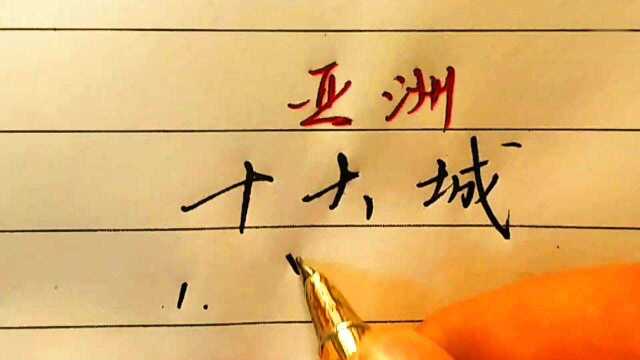 亚洲
十大城
1.